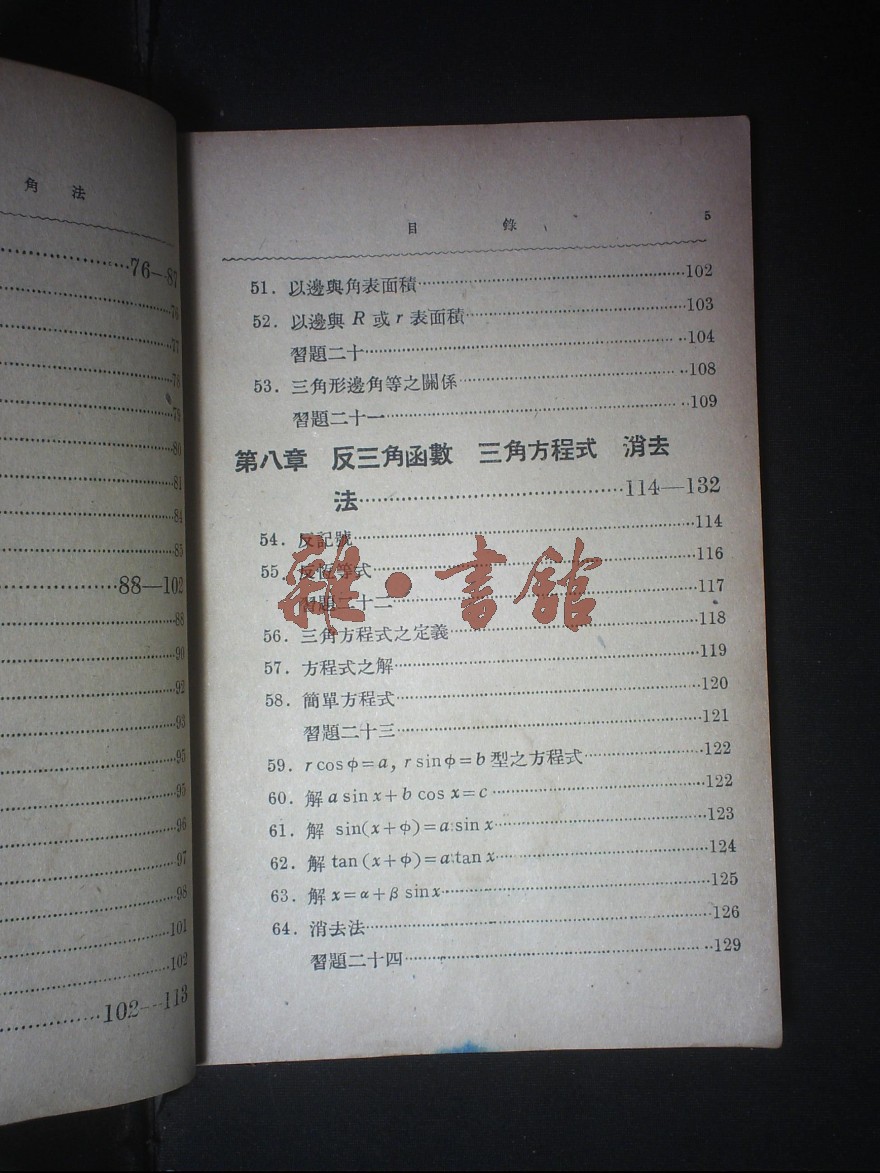 角 法
76—87
76
77
78
79
80
81
84
85
88—102
88
90
92
93
95
95
96
97
98
101
102
102—113
目 錄 5
51. 以邊與角表面積 102
52. 以邊與 R 或 r 表面積 103
習題二十 104
53. 三角形邊角等之關係 108
習題二十一 109
第八章 反三角函數 三角方程式 消去
法 114—132
54. 反記號 114
55. 反恆等式 116
習題二十二 117
56. 三角方程式之定義 118
57. 方程式之解 119
58. 簡單方程式 120
習題二十三 121
59. r cos φ = a, r sin φ = b 型之方程式 122
60. 解 a sin x + b cos x = c 122
61. 解 sin(x + φ) = a sin x 123
62. 解 tan (x + φ) = a tan x 124
63. 解 x = α + β sin x 125
64. 消去法 126
習題二十四 129
雜·書館